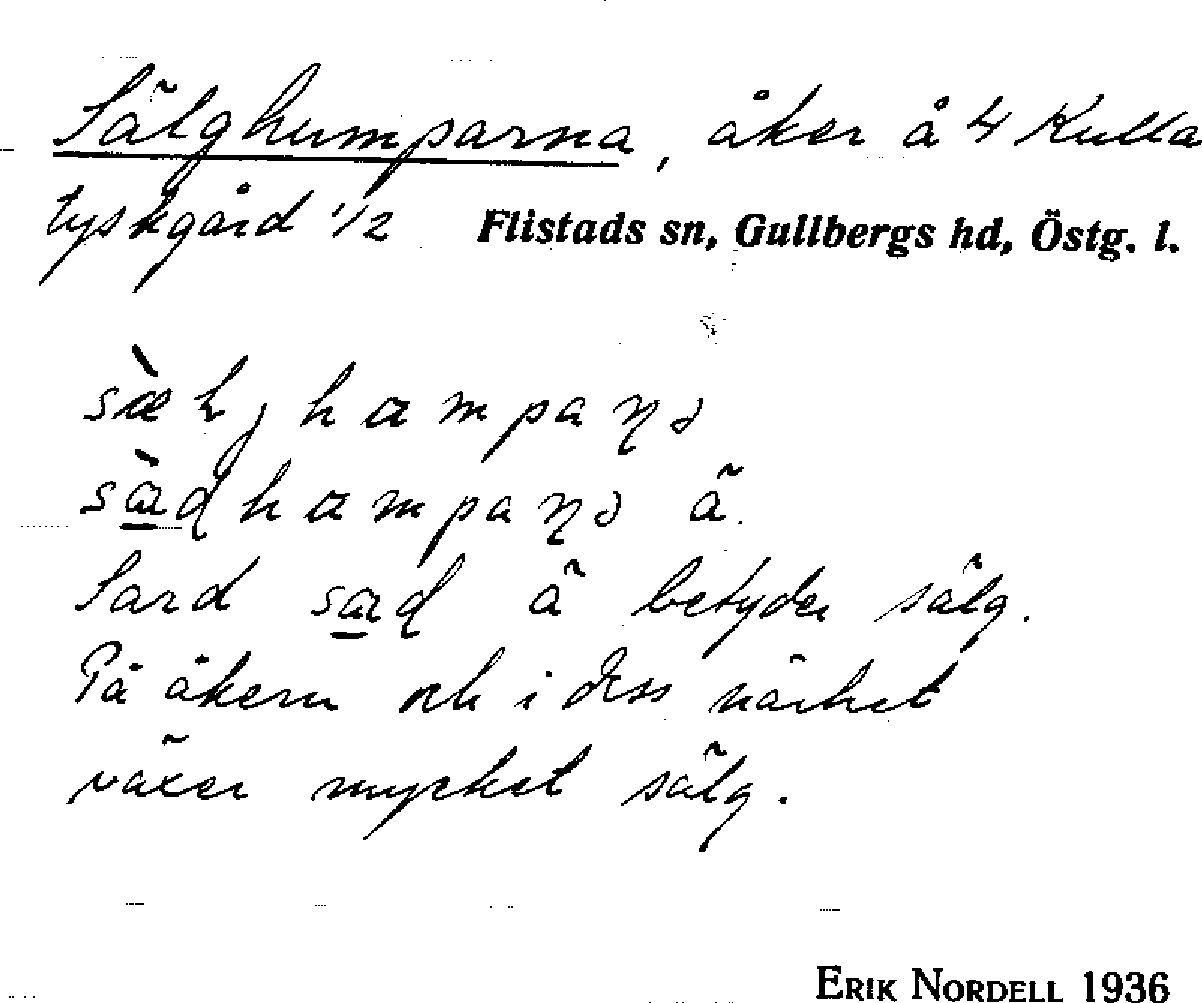 Sälghumparna, åker å 4 Kulla
tyskgård 1/2 Flistads sn, Gullbergs hd, Östg. l.
sæ̀lj hampaɳə
sàɖhampaɳə ä.
Sard saɖ ä betyder sälg.
På åkern och i dess närhet
växer mycket sälg.
ERIK NORDELL 1936